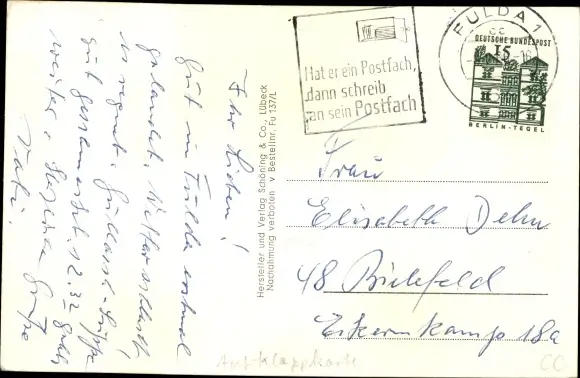 Ihr Lieben!
Gut in Fulda einmal
gelandet. Wetter schlecht,
es regnet. Gullasch-Suppe
gut geschmeckt. 12.32 geht's
weiter. Herzliche Grüße
Vati.
Hersteller und Verlag Schöning & Co., Lübeck
Nachahmung verboten v Bestellnr. Fu 137/L
Hat er ein Postfach,
dann schreib
an sein Postfach
FULDA 1
DEUTSCHE BUNDESPOST
15
BERLIN-TEGEL
Frau
Elisabeth Dehn
48 Bielefeld
Eckernkamp 18a
Aufklappkarte
CC